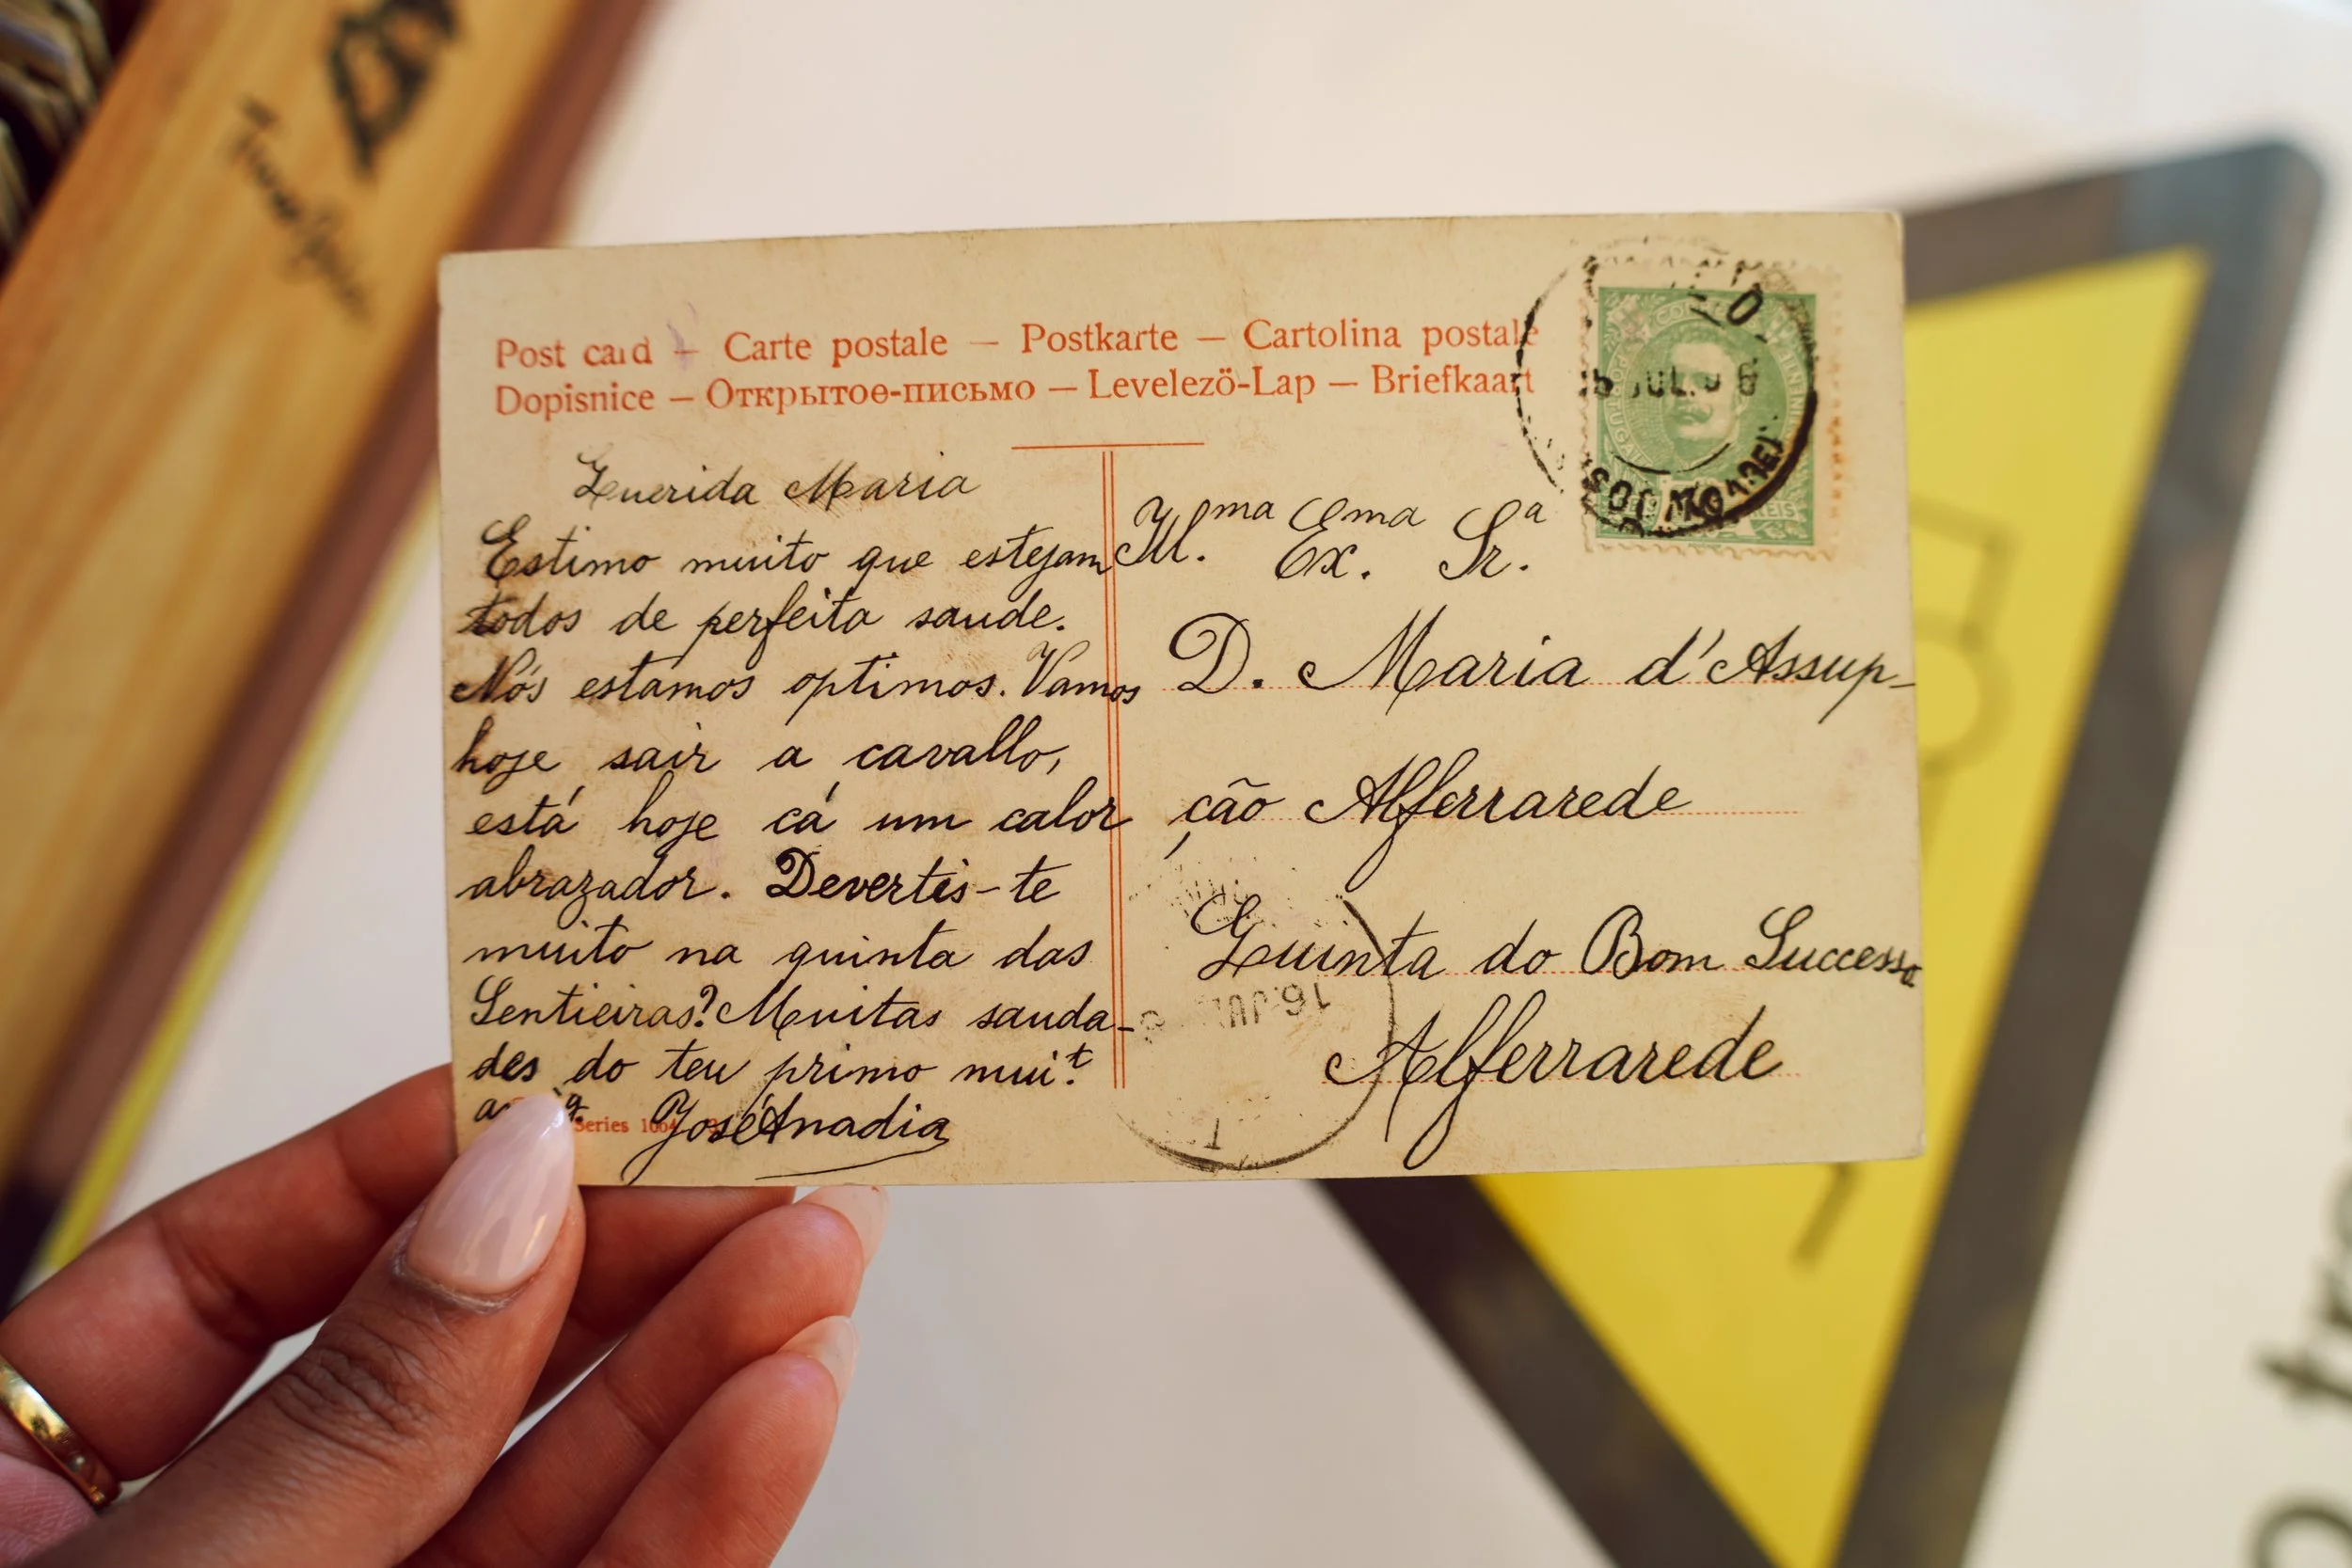 Post card — Carte postale — Postkarte — Cartolina postale
Dopisnice — Открытое-письмо — Levelezö-Lap — Briefkaart
Querida Maria
Estimo muito que estejam
todos de perfeita saude.
Nós estamos optimos. Vamos
hoje sair a cavallo,
está hoje cá um calor
abrazador. Devertis-te
muito na quinta das
Sentieiras? Muitas sauda-
des do teu primo mui.t
José Anadia
Series
Ill.ma Ex.ma Sr.a
D. Maria d'Assup-
ção Alferrarede
Quinta do Bom Successo
Alferrarede
JUL
REIS
16 JUL